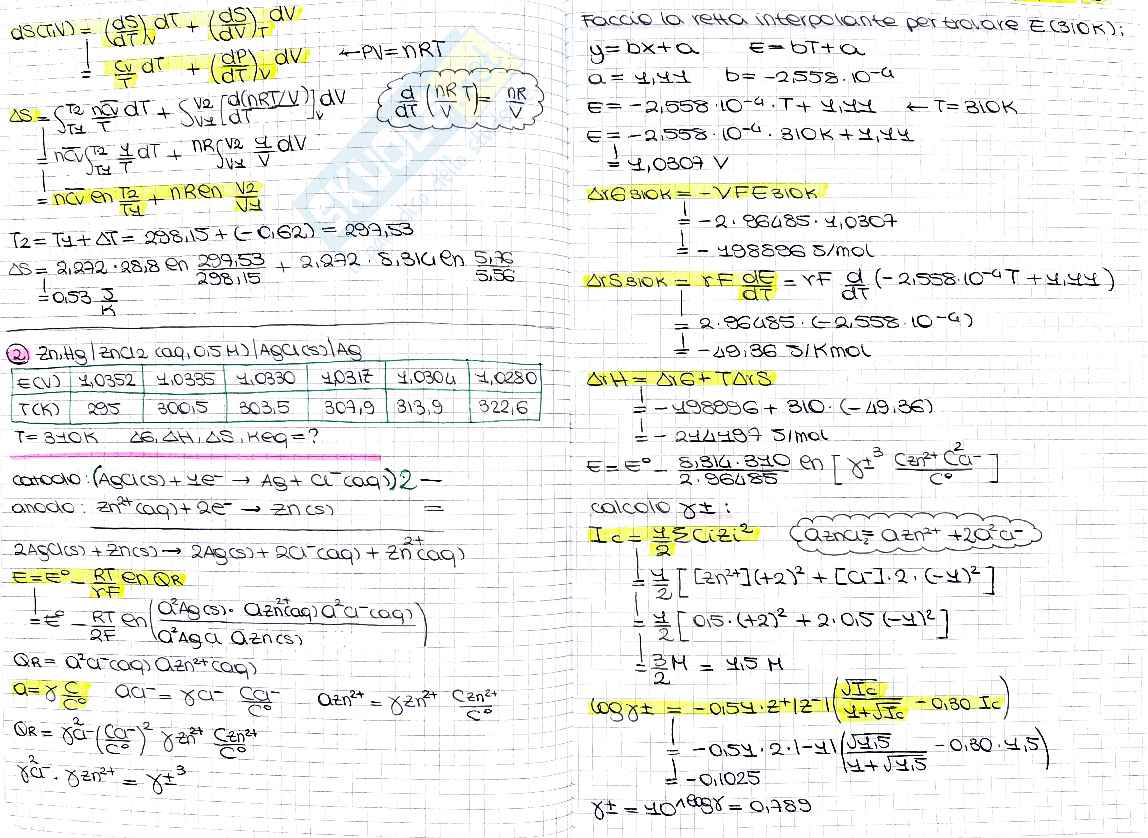 dS(T,V) = (dS/dT)V dT + (dS/dV)T dV
= Cv/T dT + (dP/dT)V dV ← PV = nRT
ΔS = ∫T1 T2 nCv/T dT + ∫V1 V2 [d(nRT/V)/dT]V dV
d/dT (nRT/V) = nR/V
= nCv ∫T1 T2 1/T dT + nR ∫V1 V2 1/V dV
= nCv ln T2/T1 + nR ln V2/V1
T2 = T1 + ΔT = 298,15 + (-0,62) = 297,53
ΔS = 2,272 · 28,8 ln 297,53/298,15 + 2,272 · 8,314 ln 5,76/5,56
= 0,53 J/K
2) Zn,Hg | ZnCl2 (aq, 0,5 M) | AgCl(s) | Ag
E(V) 1,0352 1,0335 1,0330 1,0317 1,0304 1,0280
T(K) 295 300,5 303,5 307,9 313,9 322,6
T = 310K ΔG, ΔH, ΔS, Keq = ?
catodo: (AgCl(s) + 1e- → Ag + Cl- (aq)) 2 −
anodo: Zn2+ (aq) + 2e- → Zn(s) =
2AgCl(s) + Zn(s) → 2Ag(s) + 2Cl-(aq) + Zn2+(aq)
E = E° - RT/νF ln QR
= E° - RT/2F ln (a²Ag(s) · aZn2+(aq) a²Cl-(aq) / a²AgCl aZn(s))
QR = a²Cl-(aq) aZn2+(aq)
a = γ C/C° aCl- = γCl- CCl-/C° aZn2+ = γZn2+ CZn2+/C°
QR = γ²Cl- (CCl-/C°)² γZn2+ CZn2+/C°
γ²Cl- · γZn2+ = γ±³
Faccio la retta interpolante per trovare E(310K):
y = bx + a E = bT + a
a = 1,11 b = -2,558·10-4
E = -2,558·10-4 · T + 1,11 ← T = 310K
E = -2,558·10-4 · 310K + 1,11
= 1,0307 V
ΔrG310K = -νFE310K
= -2 · 96485 · 1,0307
= -198896 J/mol
ΔrS310K = νF dE/dT = νF d/dT (-2,558·10-4 T + 1,11)
= 2·96485·(-2,558·10-4)
= -49,36 J/Kmol
ΔrH = ΔrG + TΔrS
= -198896 + 310·(-49,36)
= -214197 J/mol
E = E° - 8,314·310/2·96485 ln [γ±³ CZn2+ C²Cl-/C°]
calcolo γ±:
Ic = 1/2 Σ Ci zi²
aZnCl2 = aZn2+ + 2a²Cl-
= 1/2 [[Zn2+](+2)² + [Cl-]·2·(-1)²]
= 1/2 [0,5·(+2)² + 2·0,5(-1)²]
= 3/2 M = 1,5 M
log γ± = -0,51·z+|z-| (√Ic/1+√Ic - 0,30 Ic)
= -0,51·2·|-1| (√1,5/1+√1,5 - 0,30·1,5)
= -0,1025
γ± = 10^logγ = 0,789